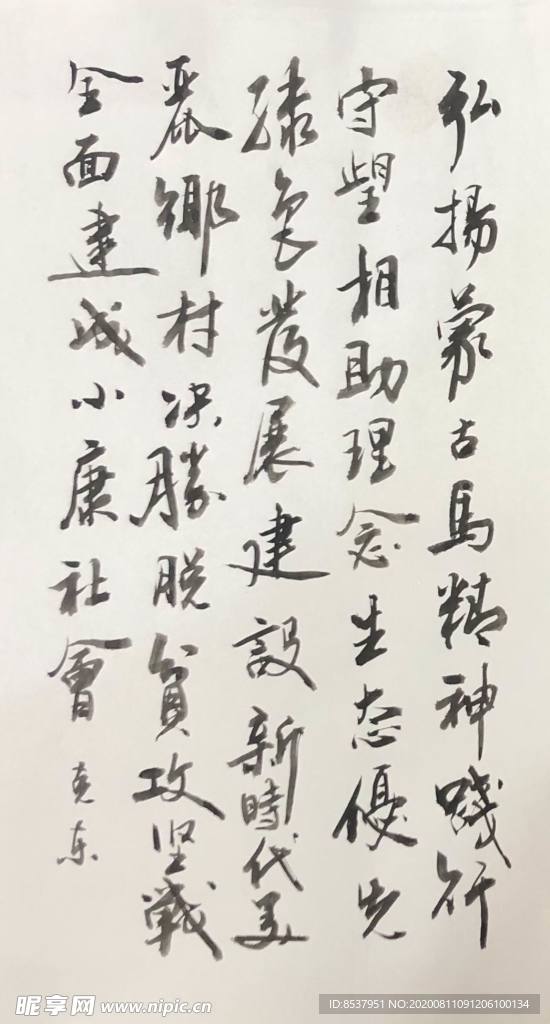 弘揚蒙古馬精神踐行
守望相助理念生态優先
綠色發展建設新時代美
麗鄉村决勝脱貧攻坚戰
全面建成小康社會
克东
昵享网 www.nipic.cn
ID:8537951 NO:20200811091206100134